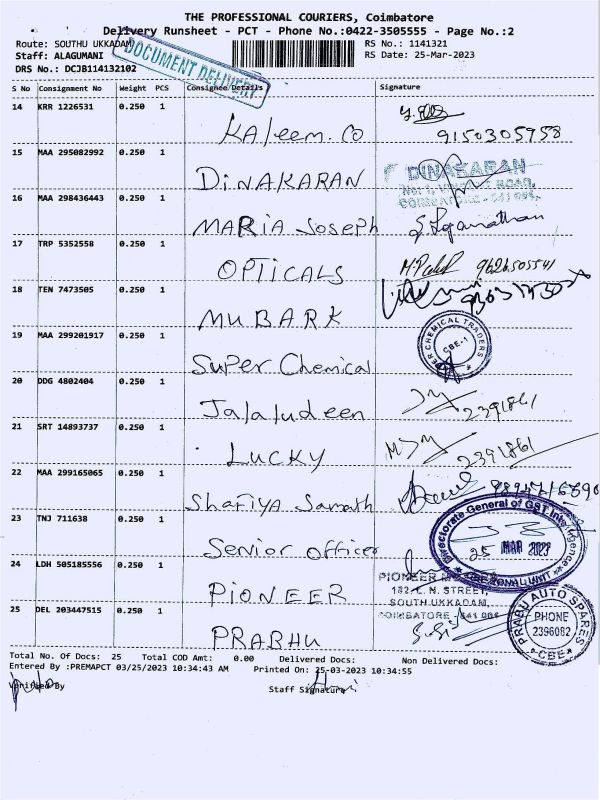 THE PROFESSIONAL COURIERS, Coimbatore
Delivery Runsheet - PCT - Phone No.:0422-3505555 - Page No.:2
Route: SOUTHU UKKADAM
RS No.: 1141321
Staff: ALAGUMANI
RS Date: 25-Mar-2023
DRS No.: DCJB114132102
DOCUMENT DELIVERY
S No Consignment No Weight PCS Consignee/Details Signature
14 KRR 1226531 0.250 1
Kaleem.Co 9150305958
15 MAA 295082992 0.250 1
DINAKARAN DINAKARAN
COIMBATORE - 641 001.
16 MAA 298436443 0.250 1
MARIA Joseph S. Loganathan
17 TRP 5352558 0.250 1
OPTICALS 9626505541
18 TEN 7473505 0.250 1
MUBARK
19 MAA 299201917 0.250 1
Super Chemical SUPER CHEMICAL TRADERS
CBE-1
20 DDG 4802404 0.250 1
Jalaludeen 2391861
21 SRT 14893737 0.250 1
LUCKY 2391861
22 MAA 299165065 0.250 1
Shafiya Samath
23 TNJ 711638 0.250 1
Senior officer Directorate General of GST Intelligence
25 MAR 2023
ZONAL UNIT
24 LDH 505185556 0.250 1
PIONEER PIONEER
182, L. N. STREET,
SOUTH UKKADAM,
COIMBATORE - 641 001
25 DEL 203447515 0.250 1
PRABHU PRABU AUTO SPARES
PHONE
2396082
CBE
Total No. Of Docs: 25 Total COD Amt: 0.00 Delivered Docs: Non Delivered Docs:
Entered By :PREMAPCT 03/25/2023 10:34:43 AM Printed On: 25-03-2023 10:34:55
Verified By Staff Signature